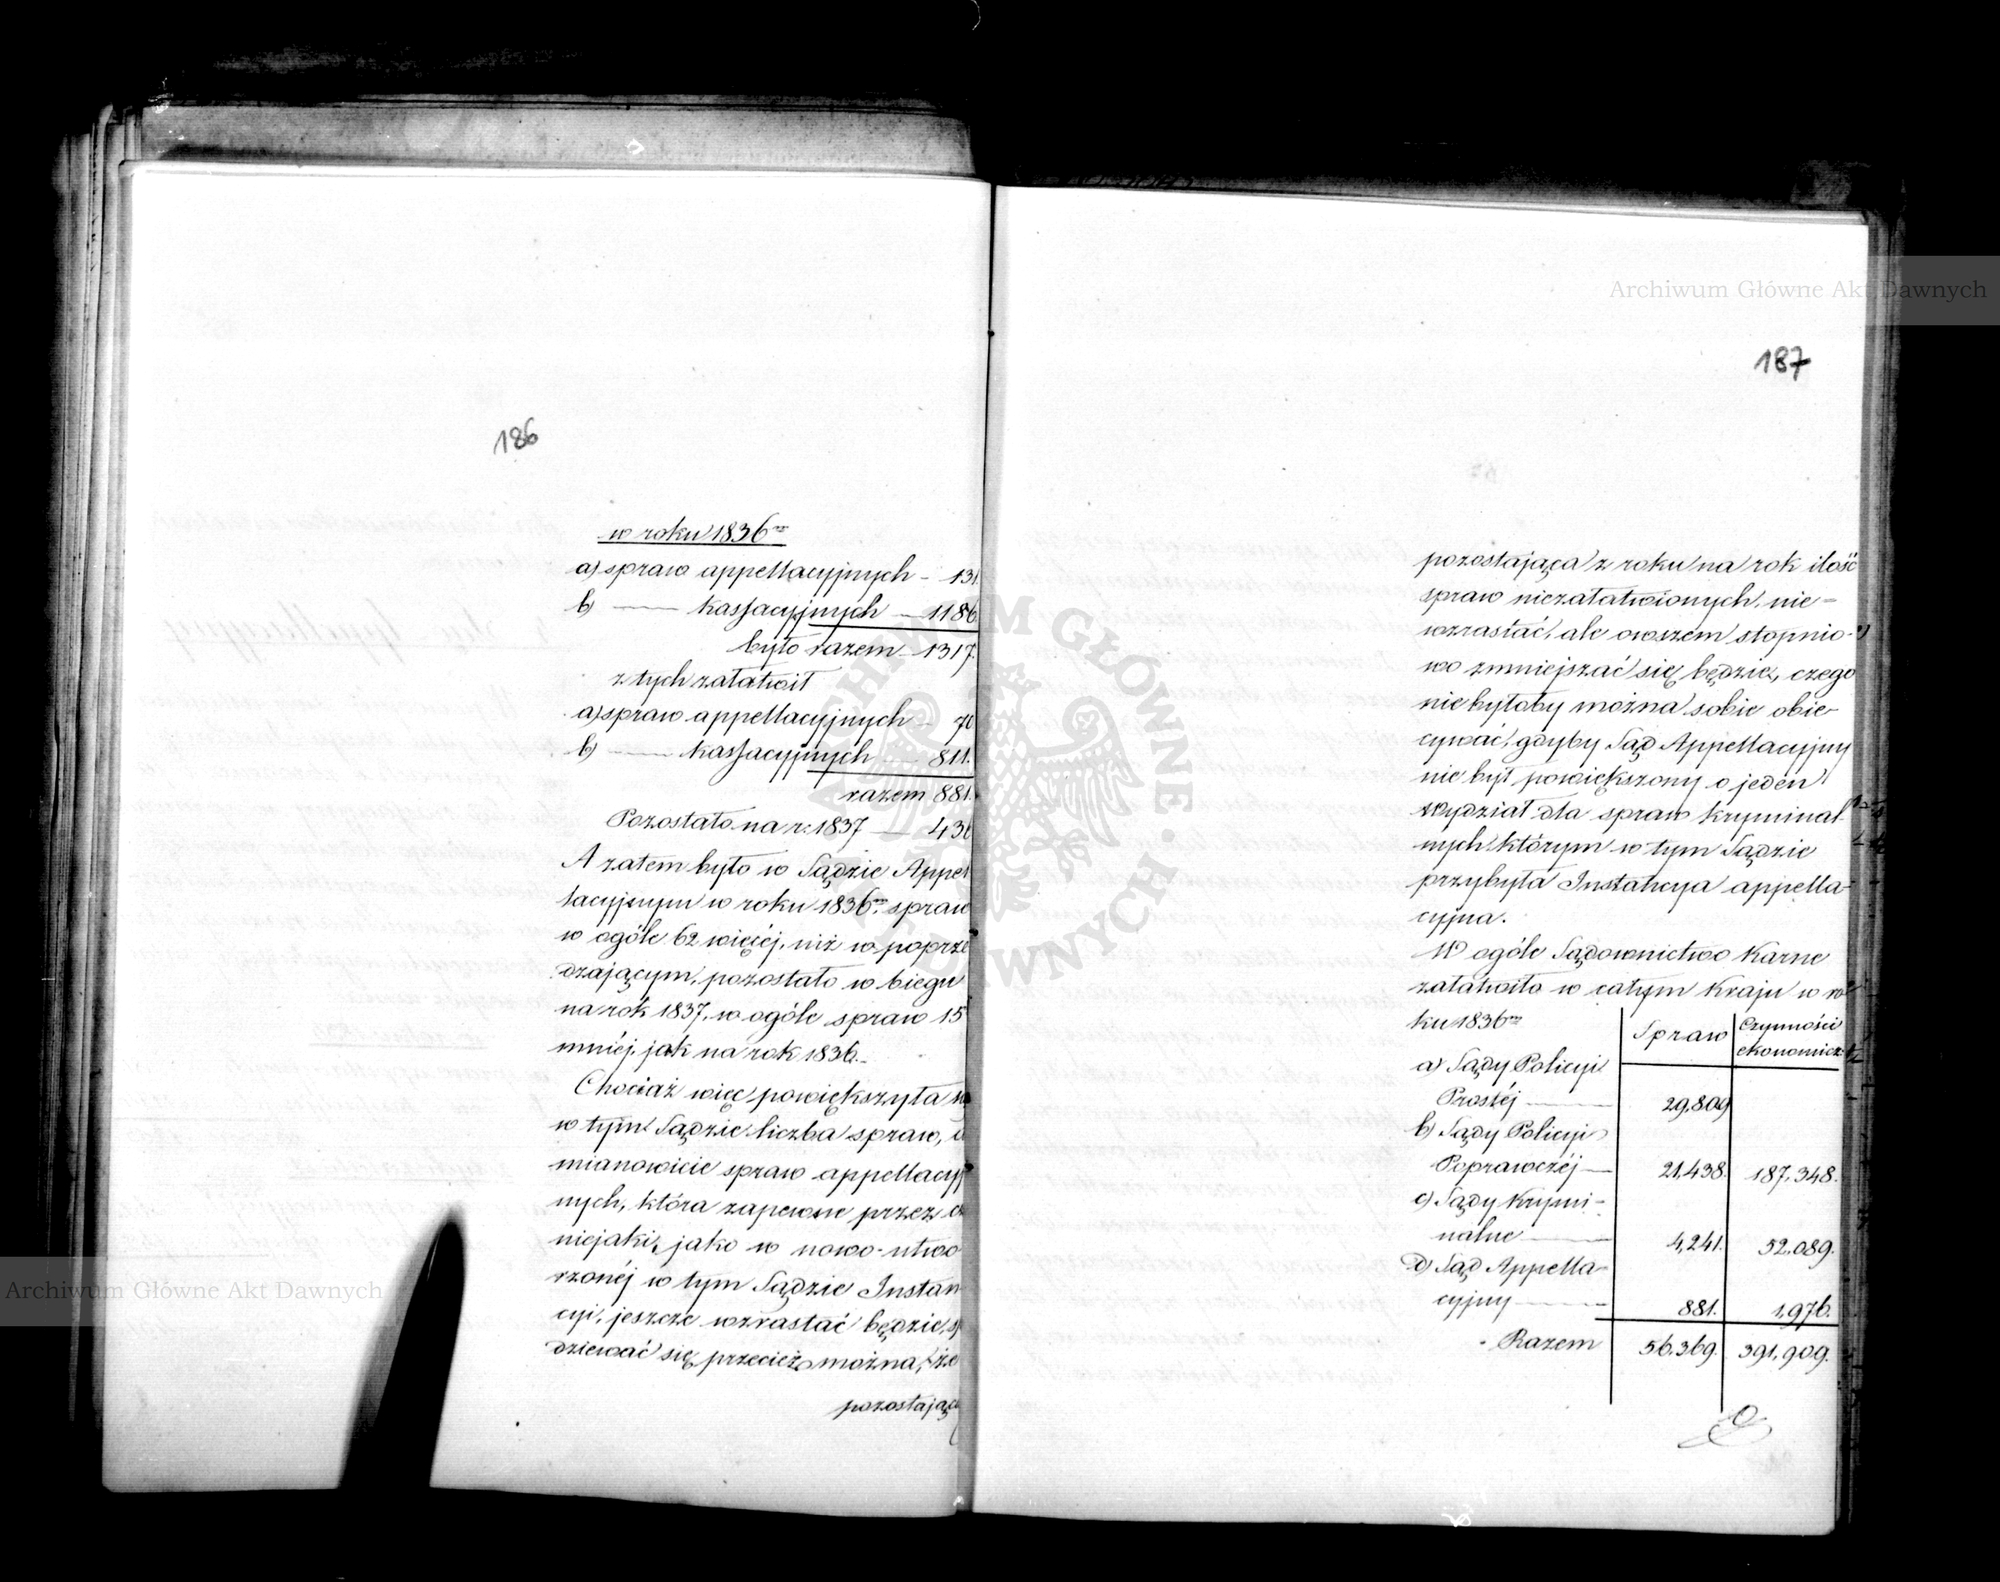 186
w roku 1836ym
a) spraw appellacyjnych - 131
b) —— kassacyjnych — 1186
było razem - 1317.
z tych załatwił
a) spraw appellacyjnych - 70
b) —— kassacyjnych — 811.
razem 881.
Pozostało na r: 1837 — 436
A zatem było w Sądzie Appel
lacyjnym w roku 1836ym spraw
w ogóle 62 więcéj, niż w poprze
dzającym, pozostało w biegu
na rok 1837, w ogóle spraw 15
mniéj, jak na rok 1836.
Chociaż więc powiększyła się
w tym Sądzie liczba spraw, a
mianowicie spraw appellacyj
nych, która zapewne przez czas
niejaki, jako w nowo-utwo
rzonéj w tym Sądzie Instan
cyi, jeszcze wzrastać będzie, spo
dziewać się przecież można, że
pozostająca
187
pozostająca z roku na rok ilość
spraw niezałatwionych, nie-
wzrastać, ale owszem stopnio-
wo zmniejszać się będzie, czego
nie byłoby można sobie obie-
cywać, gdyby Sąd Appellacyjny
nie był powiększony o jeden
wydział dla spraw kryminal
nych którym w tym Sądzie
przybyła Instancya appella-
cyjna.
W ogóle Sądownictwo Karne
załatwiło w całym Kraju w ro
ku 1836ym Spraw Czynności ekonomicz:
a) Sądy Policyi
Prostéj — 29,809
b) Sądy Policyi
Poprawczéj — 21,438. 187,348.
c) Sądy Krymi-
nalne — 4,241. 52,089.
d) Sąd Appella-
cyjny — 881. 1,976.
Razem 56,369. 391,909.
Archiwum Główne Akt Dawnych
Archiwum Główne Akt Dawnych
ARCHIWUM GŁÓWNE AKT DAWNYCH